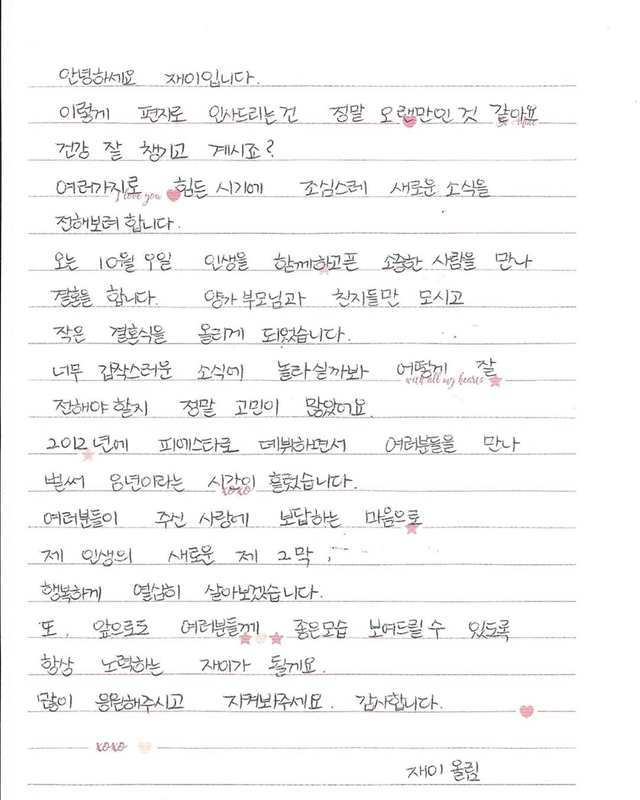 안녕하세요 재이입니다.
이렇게 편지로 인사드리는건 정말 오랜만인것 같아요
건강 잘 챙기고 계시죠?
여러가지로 힘든 시기에 조심스레 새로운 소식을
I love you
전해보려 합니다.
오는 10월 9일 인생을 함께하고픈 소중한 사람을 만나
결혼을 합니다. 양가 부모님과 친지들만 모시고
작은 결혼식을 올리게 되었습니다.
너무 갑작스러운 소식에 놀라실까봐 어떻게 잘
with all my hearts
전해야 할지 정말 고민이 많았어요.
2012년에 피에스타로 데뷔하면서 여러분들을 만나
벌써 8년이라는 시간이 흘렀습니다.
xoxo
여러분들이 주신 사랑에 보답하는 마음으로
제 인생의 새로운 제 2막,
행복하게 열심히 살아보겠습니다.
또, 앞으로도 여러분들께 좋은모습 보여드릴 수 있도록
항상 노력하는 재이가 될게요.
많이 응원해주시고 지켜봐주세요. 감사합니다.
xoxo
재이 올림